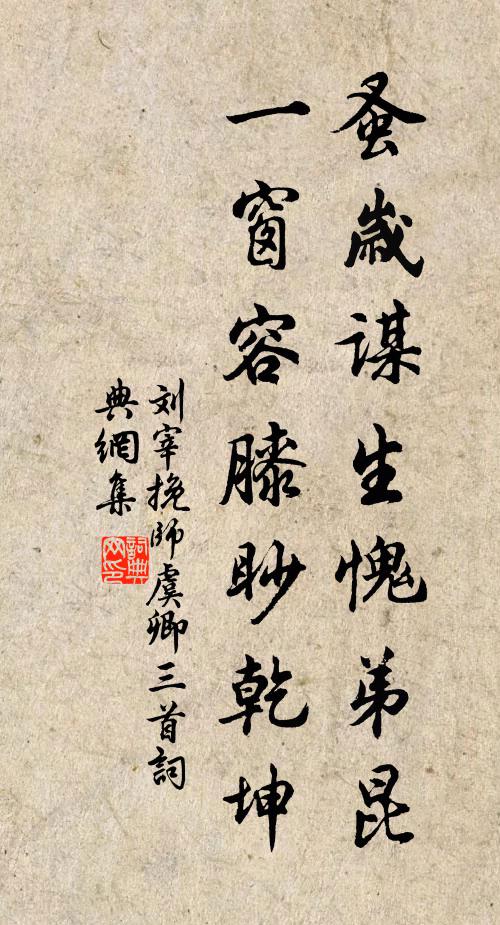 蚤歲謀生愧弟昆
一窗容膝眇乾坤
刘宰挽師虞卿三首詞
典網集
詞典
网印